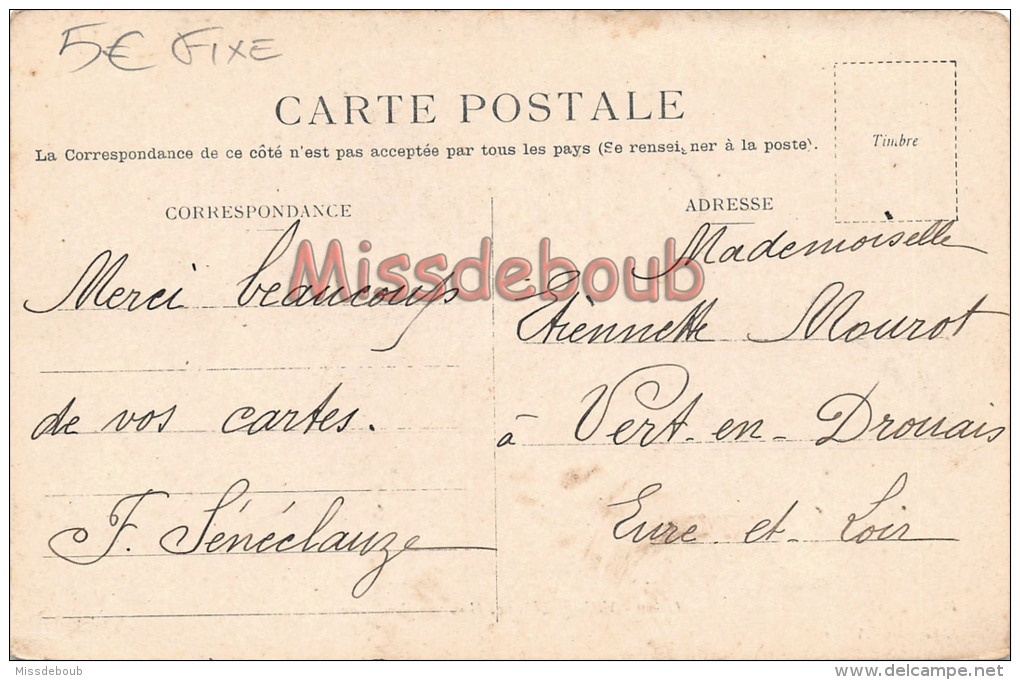 5€ FIXE
CARTE POSTALE
La Correspondance de ce côté n'est pas acceptée par tous les pays (Se renseigner à la poste).
Timbre
CORRESPONDANCE
Merci beaucoup
de vos cartes.
F. Sénéclauze
ADRESSE
Mademoiselle
Etiennette Mourot
à Vert-en-Drouais
Eure et Loir
Missdeboub
Missdeboub
www.delcampe.net